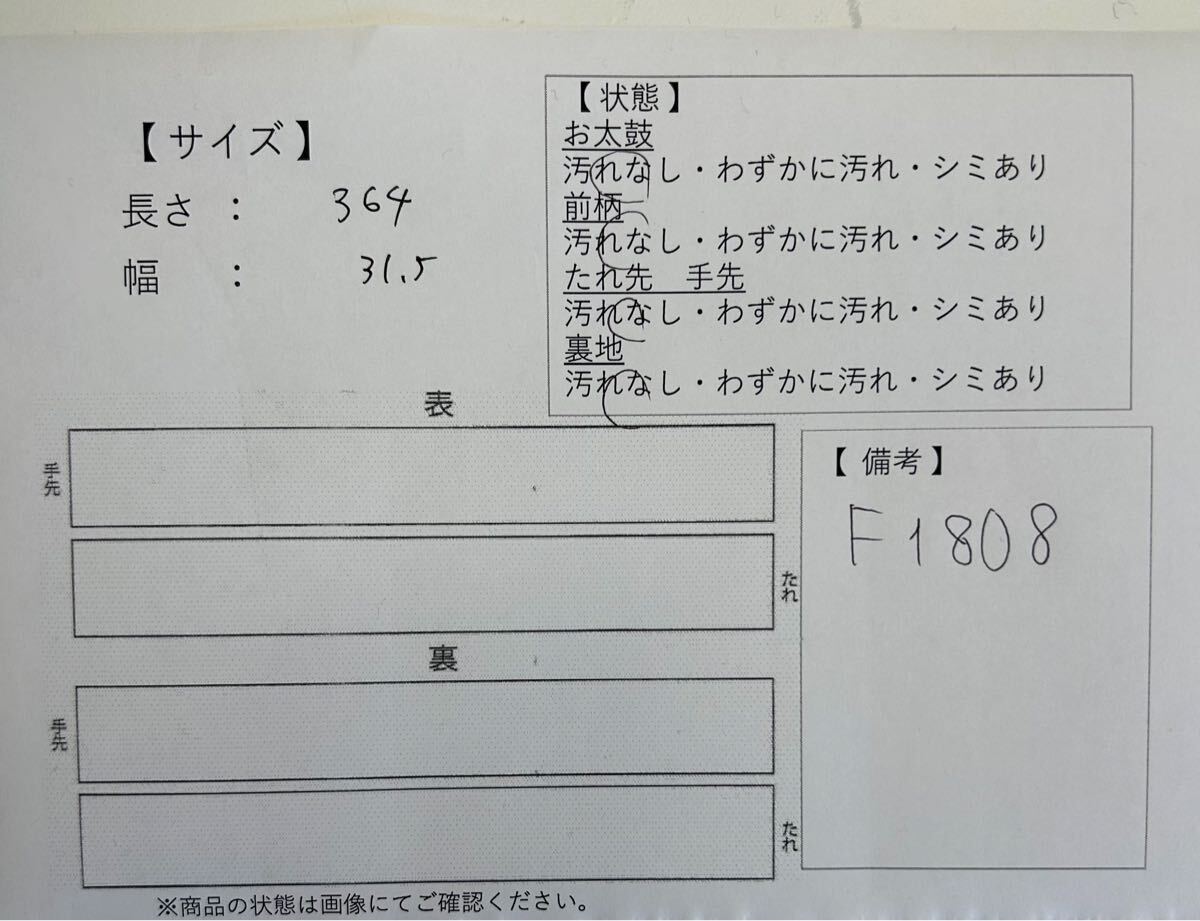 【サイズ】
長さ : 364
幅 : 31.5
【状態】
お太鼓
汚れなし・わずかに汚れ・シミあり
前柄
汚れなし・わずかに汚れ・シミあり
たれ先 手先
汚れなし・わずかに汚れ・シミあり
裏地
汚れなし・わずかに汚れ・シミあり
表
手先
たれ
裏
手先
たれ
【備考】
F1808
※商品の状態は画像にてご確認ください。